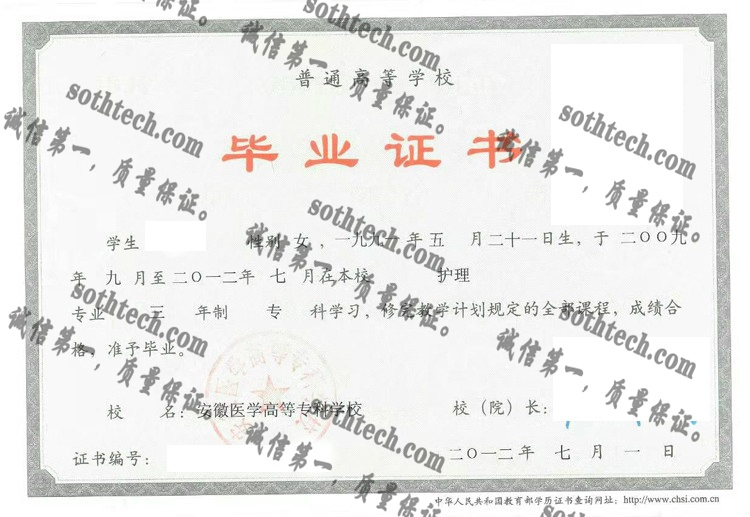 普通高等学校
毕业证书
学生 性别 女 ，一九九一年 五 月二十一日生，于 二〇〇九
年 九 月至二〇一二年 七 月在本校 护理
专业 三 年制 专 科学习，修完教学计划规定的全部课程，成绩合
格，准予毕业。
校 名：安徽医学高等专科学校 校（院）长：
证书编号： 二〇一二年 七 月 一 日
中华人民共和国教育部学历证书查询网址：http://www.chsi.com.cn
sothtech.com
诚信第一，质量保证。
sothtech.com
诚信第一，质量保证。
sothtech.com
诚信第一，质量保证。
sothtech.com
诚信第一，质量保证。
sothtech.com
诚信第一，质量保证。
sothtech.com
诚信第一，质量保证。
sothtech.com
诚信第一，质量保证。